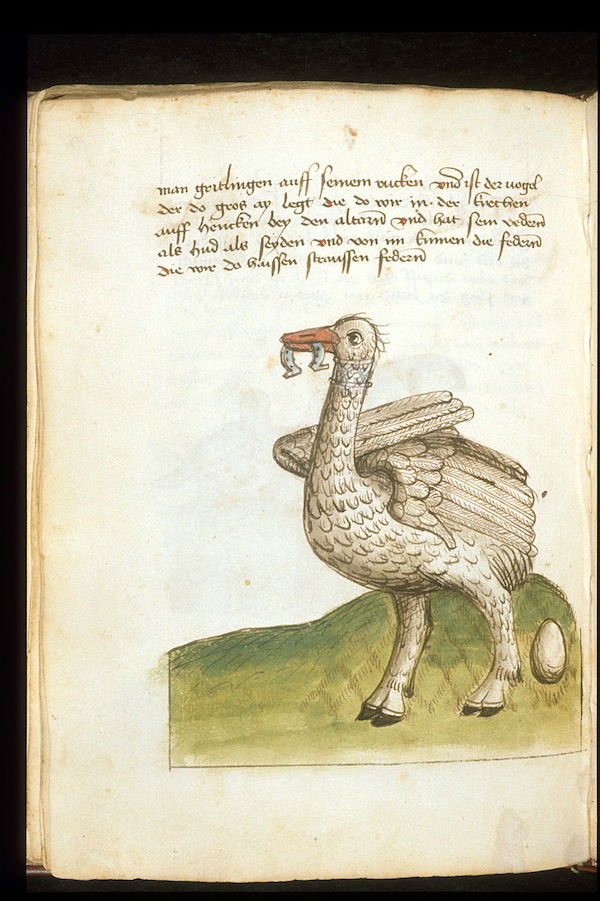 man geitlingen auff seinem rucken und ist der vogel
der do gros ay legt die do wir in der kirchen
auff hencken bey den altarn und hat sein vedern
als lind als seyden und von im kumen die federn
die wir do haissen straussen federn